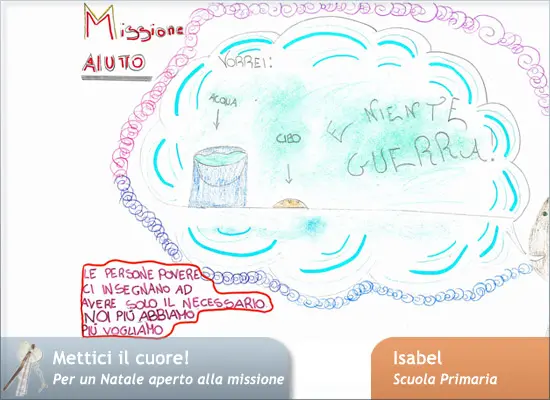 Missione
AIUTO
VORREI:
ACQUA
CIBO
E NIENTE
GUERRA!
LE PERSONE POVERE
CI INSEGNANO AD
AVERE SOLO IL NECESSARIO
NOI PIÙ ABBIAMO
PIÙ VOGLIAMO
Mettici il cuore!
Per un Natale aperto alla missione
Isabel
Scuola Primaria